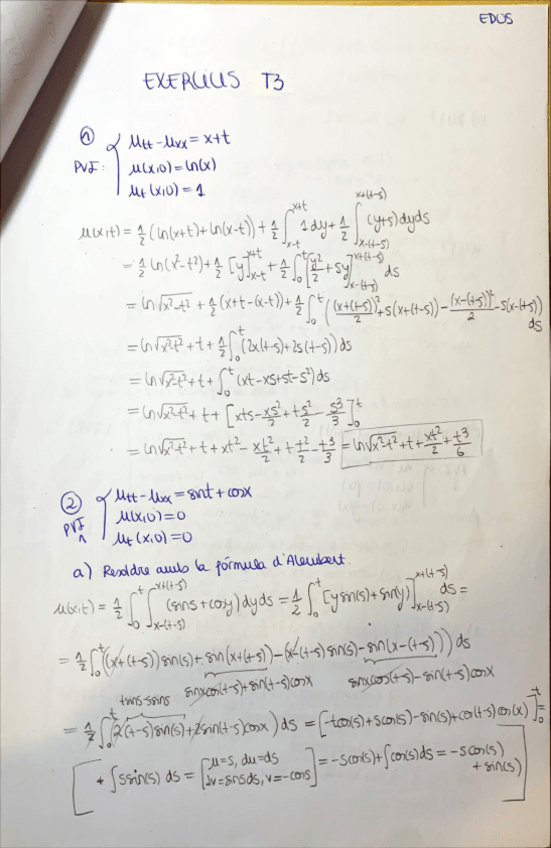 EDOS
EXERCICIS T3
① PVI: { u_tt - u_xx = x+t
u(x,0) = ln(x)
u_t(x,0) = 1
u(x,t) = 1/2 (ln(x+t)+ln(x-t)) + 1/2 ∫_{x-t}^{x+t} 1dy + 1/2 ∫_{x-(t-s)}^{x+(t-s)} (y+s)dyds
= 1/2 ln(x²-t²) + 1/2 [y]_{x-t}^{x+t} + 1/2 ∫_0^t [y²/2 + sy]_{x-(t-s)}^{x+(t-s)} ds
= ln√(x²-t²) + 1/2 (x+t-(x-t)) + 1/2 ∫_0^t ((x+(t-s))²/2 + s(x+(t-s)) - (x-(t-s))²/2 - s(x-(t-s))) ds
= ln√(x²-t²) + t + 1/2 ∫_0^t (2x(t-s)+2s(t-s)) ds
= ln√(x²-t²) + t + ∫_0^t (xt-xs+st-s²) ds
= ln√(x²-t²) + t + [xts - xs²/2 + ts²/2 - s³/3]_0^t
= ln√(x²-t²) + t + xt² - xt²/2 + t t²/2 - t³/3 = ln√(x²-t²) + t + xt²/2 + t³/6
② PVI 1 { u_tt - u_xx = sint + cosx
u(x,0) = 0
u_t(x,0) = 0
a) Resoldre amb la fórmula d'Alembert.
u(x,t) = 1/2 ∫_0^t ∫_{x-(t-s)}^{x+(t-s)} (sins + cosy) dyds = 1/2 ∫_0^t [ysin(s) + sin(y)]_{x-(t-s)}^{x+(t-s)} ds =
= 1/2 ∫_0^t ((x+(t-s))sin(s) + sin(x+(t-s)) - (x-(t-s)sin(s) - sin(x-(t-s)))) ds
tsins-ssins sinxcos(t-s)+sin(t-s)cosx sinxcos(t-s)-sin(t-s)cosx
= 1/2 ∫_0^t (2(t-s)sin(s) + 2sin(t-s)cosx) ds = [-tcos(s) + scos(s) - sin(s) + cos(t-s)cos(x)]_0^t =
* ∫ssin(s) ds = [u=s, du=ds
dv=sinsds, v=-coss] = -scos(s) + ∫cos(s)ds = -scos(s) + sin(s)